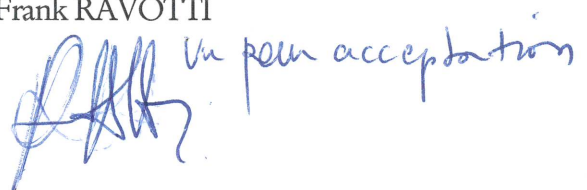 Frank RAVOTTI
Vu pour acceptation